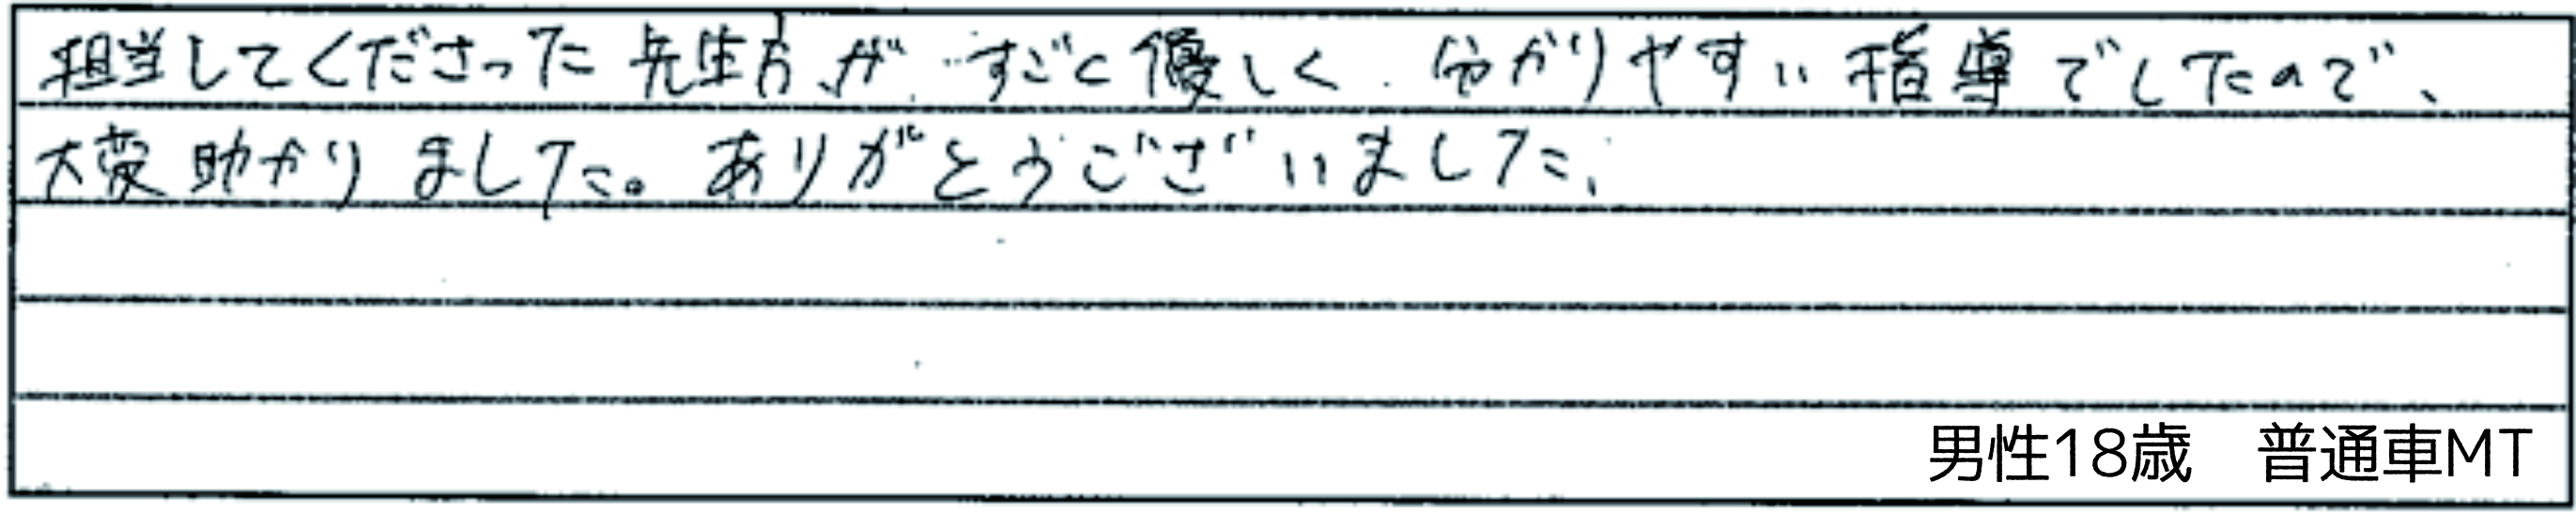 担当してくださった先生方が、すごく優しく、分かりやすい指導でしたので、
大変助かりました。ありがとうございました、
男性18歳　普通車MT